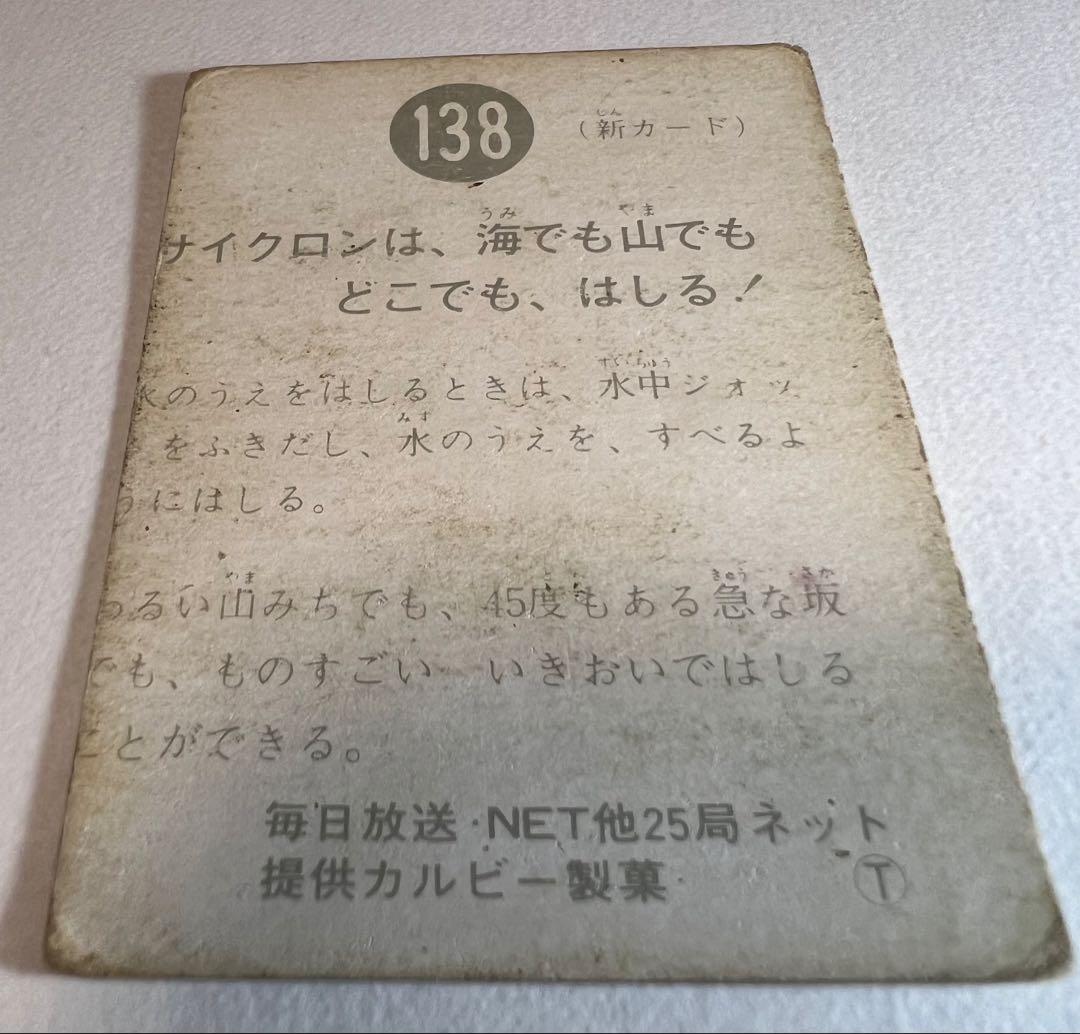 138 (新カード)
サイクロンは、海でも山でも
どこでも、はしる!
水のうえをはしるときは、水中ジオッ
をふきだし、水のうえを、すべるよ
うにはしる。
わるい山みちでも、45度もある急な坂
でも、ものすごい いきおいではしる
ことができる。
毎日放送・NET他25局ネット
提供カルビー製菓 Ⓣ